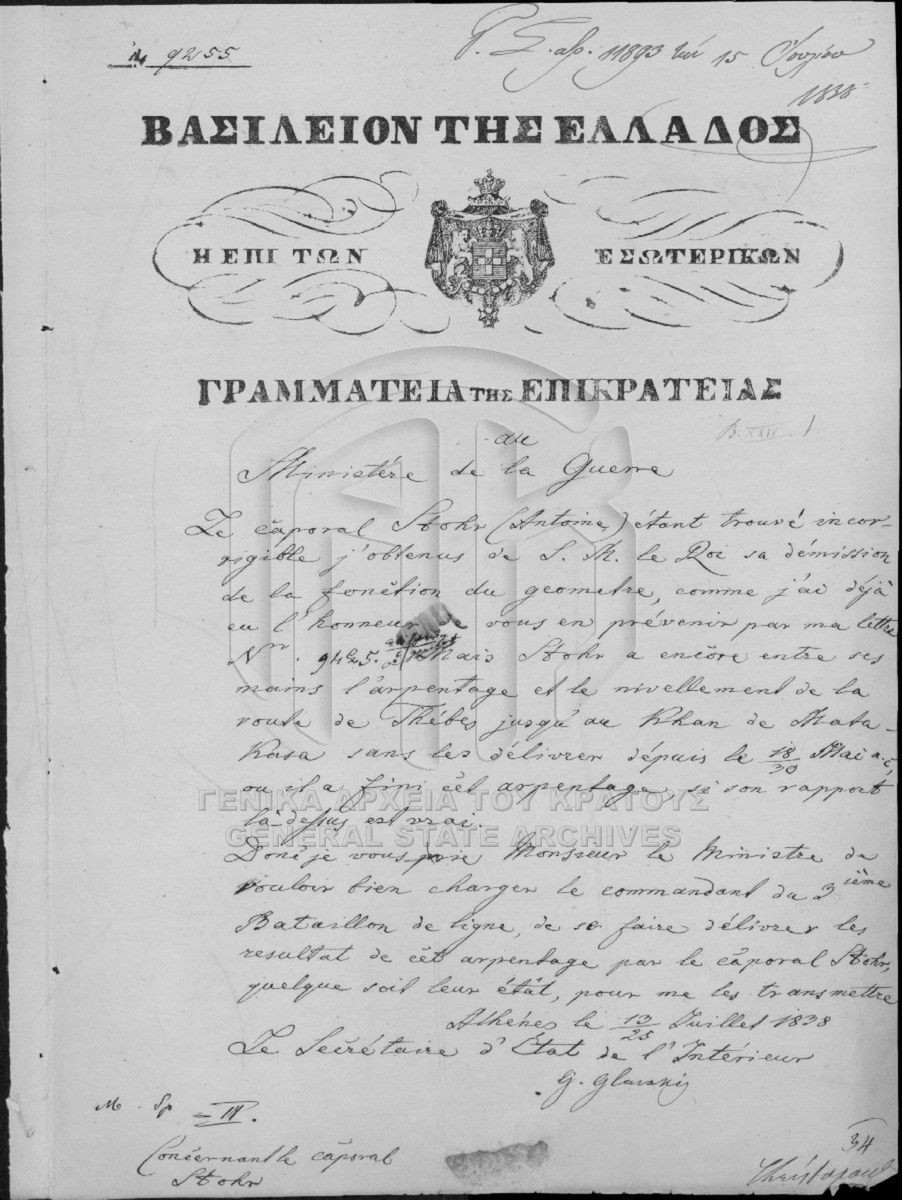 № 9255
Γ. Σ. αρ. 11893 15 Ἰουλίου
1838
ΒΑΣΙΛΕΙΟΝ ΤΗΣ ΕΛΛΑΔΟΣ
Η ΕΠΙ ΤΩΝ ΕΣΩΤΕΡΙΚΩΝ
ΓΡΑΜΜΑΤΕΙΑ ΤΗΣ ΕΠΙΚΡΑΤΕΙΑΣ
au
Ministére de la Guerre
Le cäporal Stohr (Antoine) étant trouvé incor-
rigible j'obtenus de S. M. le Roi sa démission
de la fonction du geometre, comme j'ai déjà
eu l'honneur vous en prévenir par ma lettre
Nr. 9425. Mais Stohr a encöre entre ses
mains l'arpentage et le nivellement de la
route de Thébes jusqu'au Khan de Mata-
Kasa sans les délivrer dépuis le 18/30 Mai a.c,
ou il a fini cët arpentage, si son rapport
là-dessus est vrai.
Donc je vous prie Monsieur le Ministre de
vouloir bien charger le commandant du 3ième
Bataillon de ligne, de se faire délivrer les
resultat de cët arpentage par le cäporal Stohr,
quelque soit leur ëtät, pour me les transmettre
Athénes le 13/25 Juillet 1838
Le Secrétaire d'État de l'Intérieur
G. Glarakis
M. Sp. III.
Concernant le cäporal
Stohr
34
ΓΕΝΙΚΑ ΑΡΧΕΙΑ ΤΟΥ ΚΡΑΤΟΥΣ
GENERAL STATE ARCHIVES